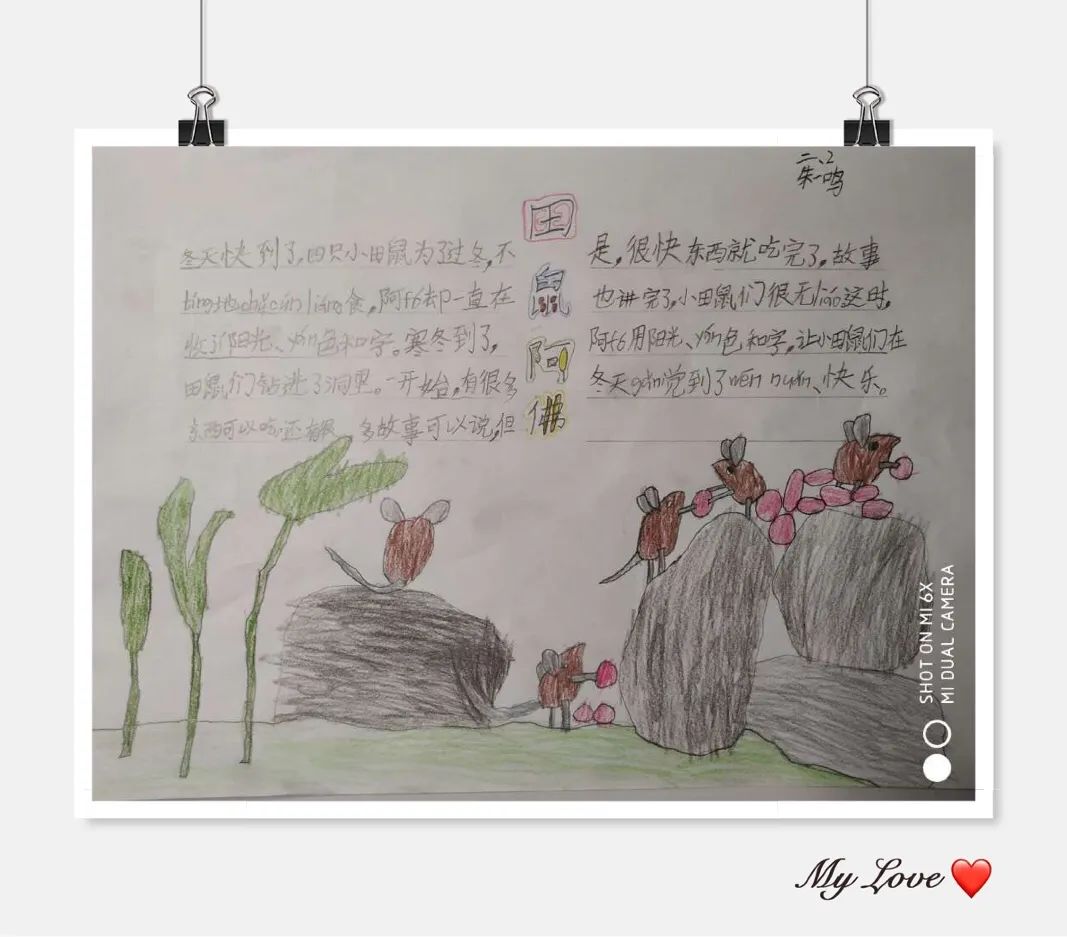 二、2
朱一鸣
田鼠阿佛
冬天快到了,四只小田鼠为了过冬,不
tíng地 cǎi cún liáng食,阿fó却一直在
收了阳光、yán色和字。寒冬到了,
田鼠们钻进了洞里。一开始,有很多
东西可以吃,还有很多故事可以说,但
是,很快东西就吃完了,故事
也讲完了,小田鼠们很无liáo这时,
阿fó用阳光、yán色和字,让小田鼠们在
冬天gǎn觉到了wēn nuǎn、快乐。
SHOT ON MI 6X
MI DUAL CAMERA
My Love ❤️